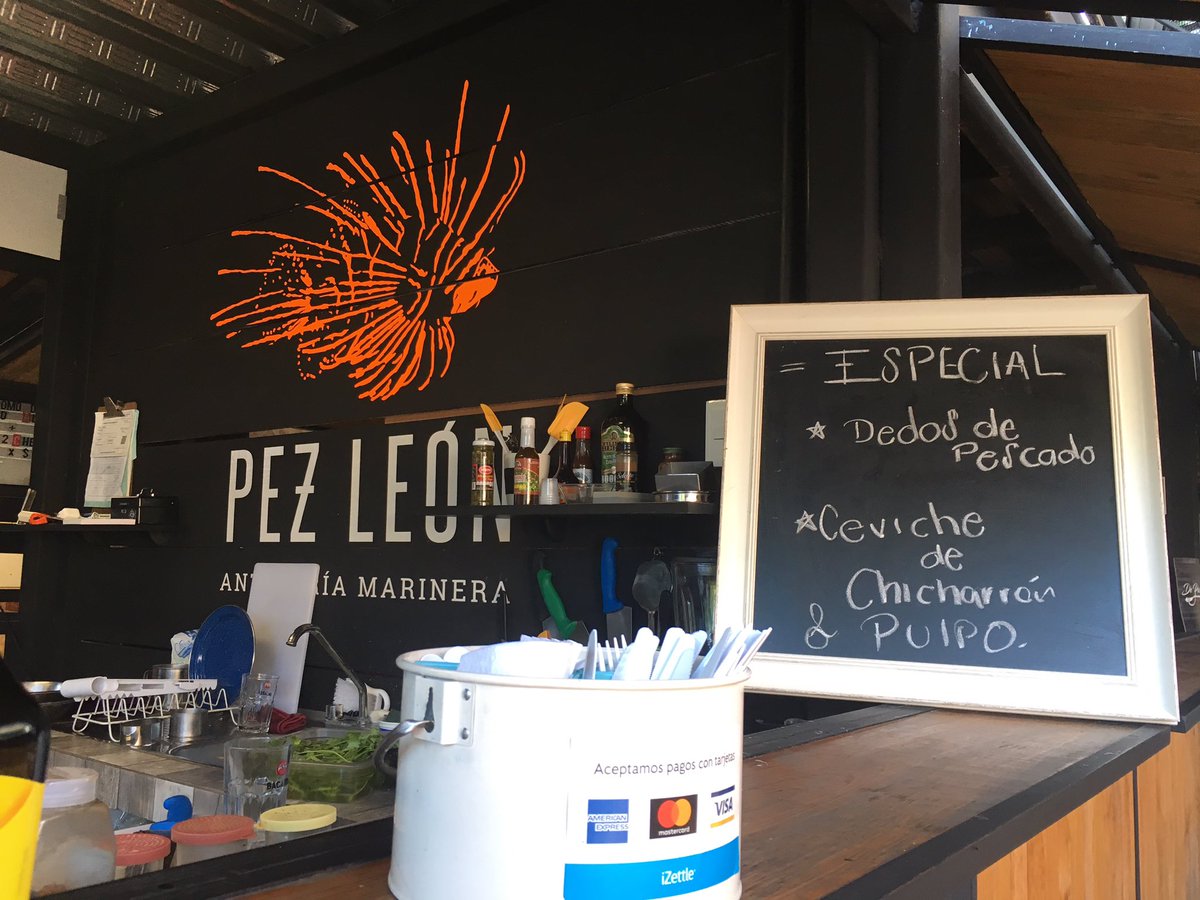 PEZ LEÓN
MARINERA
= ESPECIAL
☆ Dedos de
Pescado
☆ Ceviche
de
Chicharrón
& PULPO.
Aceptamos pagos con tarjetas
AMERICAN
EXPRESS
mastercard
VISA
iZettle